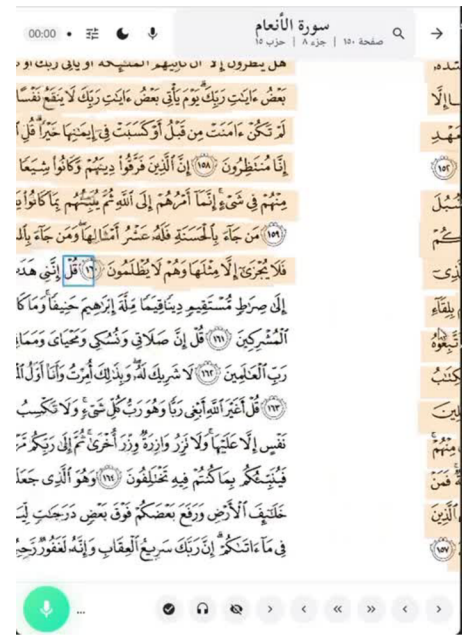 00:00
سورة الأنعام
صفحة ١٥٠ | جزء ٨ | حزب ١٥
هَلْ يَنظُرُونَ إِلَّا أَن تَأْتِيَهُمُ الْمَلَٰٓئِكَةُ أَوْ يَأْتِيَ رَبُّكَ أَوْ
بَعْضُ ءَايَٰتِ رَبِّكَ ۗ يَوْمَ يَأْتِى بَعْضُ ءَايَٰتِ رَبِّكَ لَا يَنفَعُ نَفْسًا
لَمْ تَكُنْ ءَامَنَتْ مِن قَبْلُ أَوْ كَسَبَتْ فِىٓ إِيمَٰنِهَا خَيْرًا ۗ قُلِ
إِنَّا مُنتَظِرُونَ ١٥٨ إِنَّ ٱلَّذِينَ فَرَّقُوا۟ دِينَهُمْ وَكَانُوا۟ شِيَعًا
مِنْهُمْ فِى شَىْءٍ ۚ إِنَّمَآ أَمْرُهُمْ إِلَى ٱللَّهِ ثُمَّ يُنَبِّئُهُم بِمَا كَانُوا۟
١٥٩ مَن جَآءَ بِٱلْحَسَنَةِ فَلَهُۥ عَشْرُ أَمْثَالِهَا ۖ وَمَن جَآءَ
فَلَا يُجْزَىٰٓ إِلَّا مِثْلَهَا وَهُمْ لَا يُظْلَمُونَ ١٦٠ قُلْ إِنَّنِى
إِلَىٰ صِرَٰطٍ مُّسْتَقِيمٍ دِينًا قِيَمًا مِّلَّةَ إِبْرَٰهِيمَ حَنِيفًا ۚ وَمَا
ٱلْمُشْرِكِينَ ١٦١ قُلْ إِنَّ صَلَاتِى وَنُسُكِى وَمَحْيَاىَ
رَبِّ ٱلْعَٰلَمِينَ ١٦٢ لَا شَرِيكَ لَهُۥ ۖ وَبِذَٰلِكَ أُمِرْتُ وَأَنَا۠ أَوَّلُ
١٦٣ قُلْ أَغَيْرَ ٱللَّهِ أَبْغِى رَبًّا وَهُوَ رَبُّ كُلِّ شَىْءٍ ۚ وَلَا تَكْسِبُ
نَفْسٍ إِلَّا عَلَيْهَا ۚ وَلَا تَزِرُ وَازِرَةٌ وِزْرَ أُخْرَىٰ ۚ ثُمَّ إِلَىٰ رَبِّكُم
فَيُنَبِّئُكُم بِمَا كُنتُمْ فِيهِ تَخْتَلِفُونَ ١٦٤ وَهُوَ ٱلَّذِى
خَلَٰٓئِفَ ٱلْأَرْضِ وَرَفَعَ بَعْضَكُمْ فَوْقَ بَعْضٍ دَرَجَٰتٍ
فِى مَآ ءَاتَىٰكُمْ ۗ إِنَّ رَبَّكَ سَرِيعُ ٱلْعِقَابِ وَإِنَّهُۥ لَغَفُورٌ